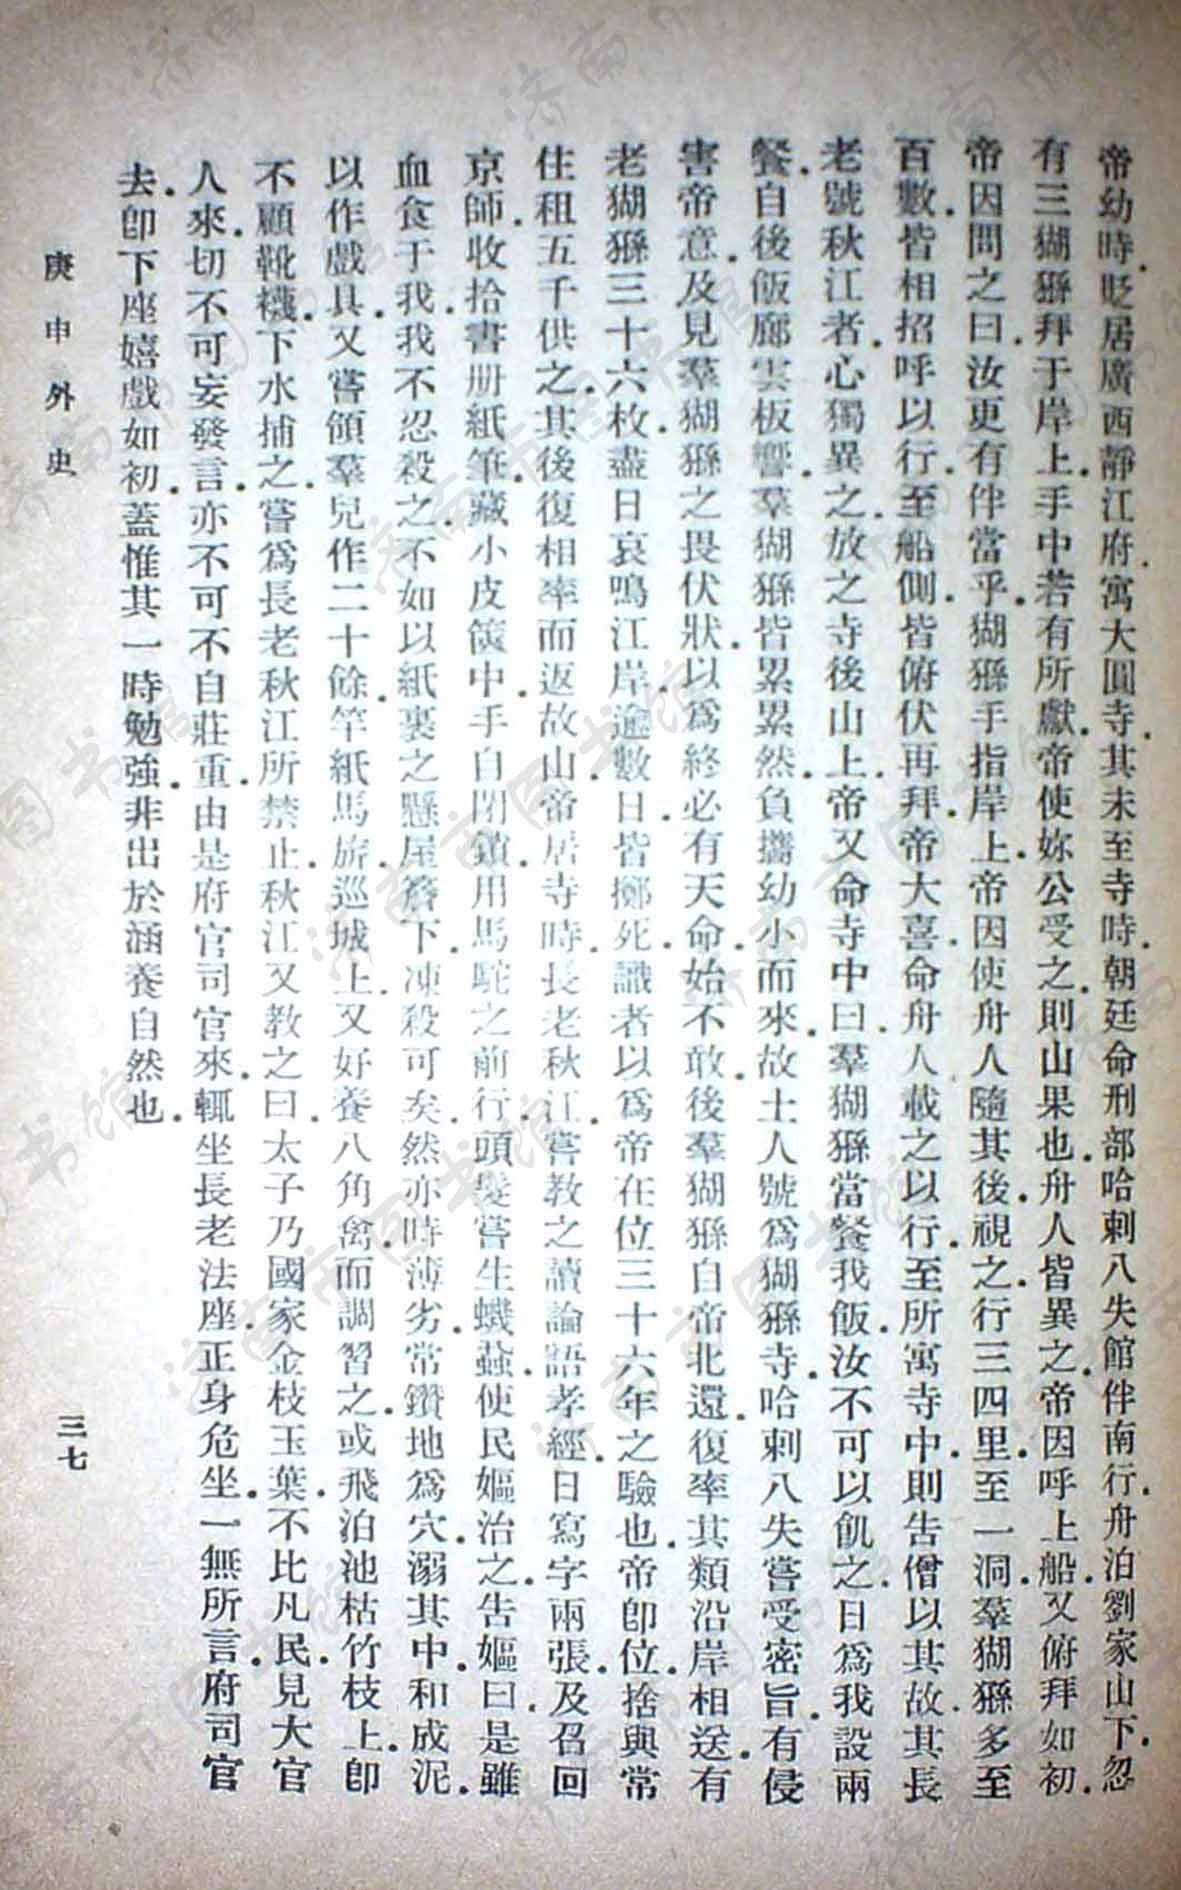 帝幼時．貶居廣西靜江府．寓大圓寺．其未至寺時．朝廷命刑部哈剌八失館伴南行．舟泊劉家山下．忽
有三猢猻拜于岸上．手中若有所獻．帝使妳公受之．則山果也．舟人皆異之．帝因呼上船．又俯拜如初．
帝因問之曰．汝更有伴當乎．猢猻手指岸上．帝因使舟人隨其後視之．行三四里．至一洞．羣猢猻多至
百數．皆相招呼以行．至船側．皆俯伏再拜．帝大喜．命舟人載之以行．至所寓寺中．則告僧以其故．其長
老號秋江者．心獨異之．放之寺後山上．帝又命寺中曰．羣猢猻當餐我飯．汝不可以飢之．日爲我設兩
餐．自後飯廊雲板響．羣猢猻皆累累然．負攜幼小而來．故土人號爲猢猻寺．哈剌八失嘗受密旨．有侵
害帝意．及見羣猢猻之畏伏狀．以爲終必有天命．始不敢．後羣猢猻自帝北還．復率其類沿岸相送．有
老猢猻三十六枚．盡日哀鳴江岸．逾數日．皆擲死．識者以爲帝在位三十六年之驗也．帝卽位．捨與常
住租五千供之．其後復相率而返故山．帝居寺時．長老秋江．嘗教之讀論語孝經．日寫字兩張．及召回
京師．收拾書册紙筆．藏小皮篋中．手自閉鎖．用馬駝之前行．頭髮嘗生蟣蝨．使民嫗治之．告嫗曰．是雖
血食于我．我不忍殺之．不如以紙裏之懸屋簷下．凍殺可矣．然亦時薄劣．常鑽地爲穴．溺其中．和成泥．
以作戲具．又嘗領羣兒．作二十餘竿紙馬旂．巡城上．又好養八角禽．而調習之．或飛泊池枯竹枝上．卽
不顧靴襪．下水捕之．嘗爲長老秋江所禁止．秋江又教之曰．太子乃國家金枝玉葉．不比凡民．見大官
人來．切不可妄發言．亦不可不自莊重．由是府官司官來．輒坐長老法座．正身危坐．一無所言．府司官
去．卽下座嬉戲如初．蓋惟其一時勉強．非出於涵養自然也．
庚申外史
三七